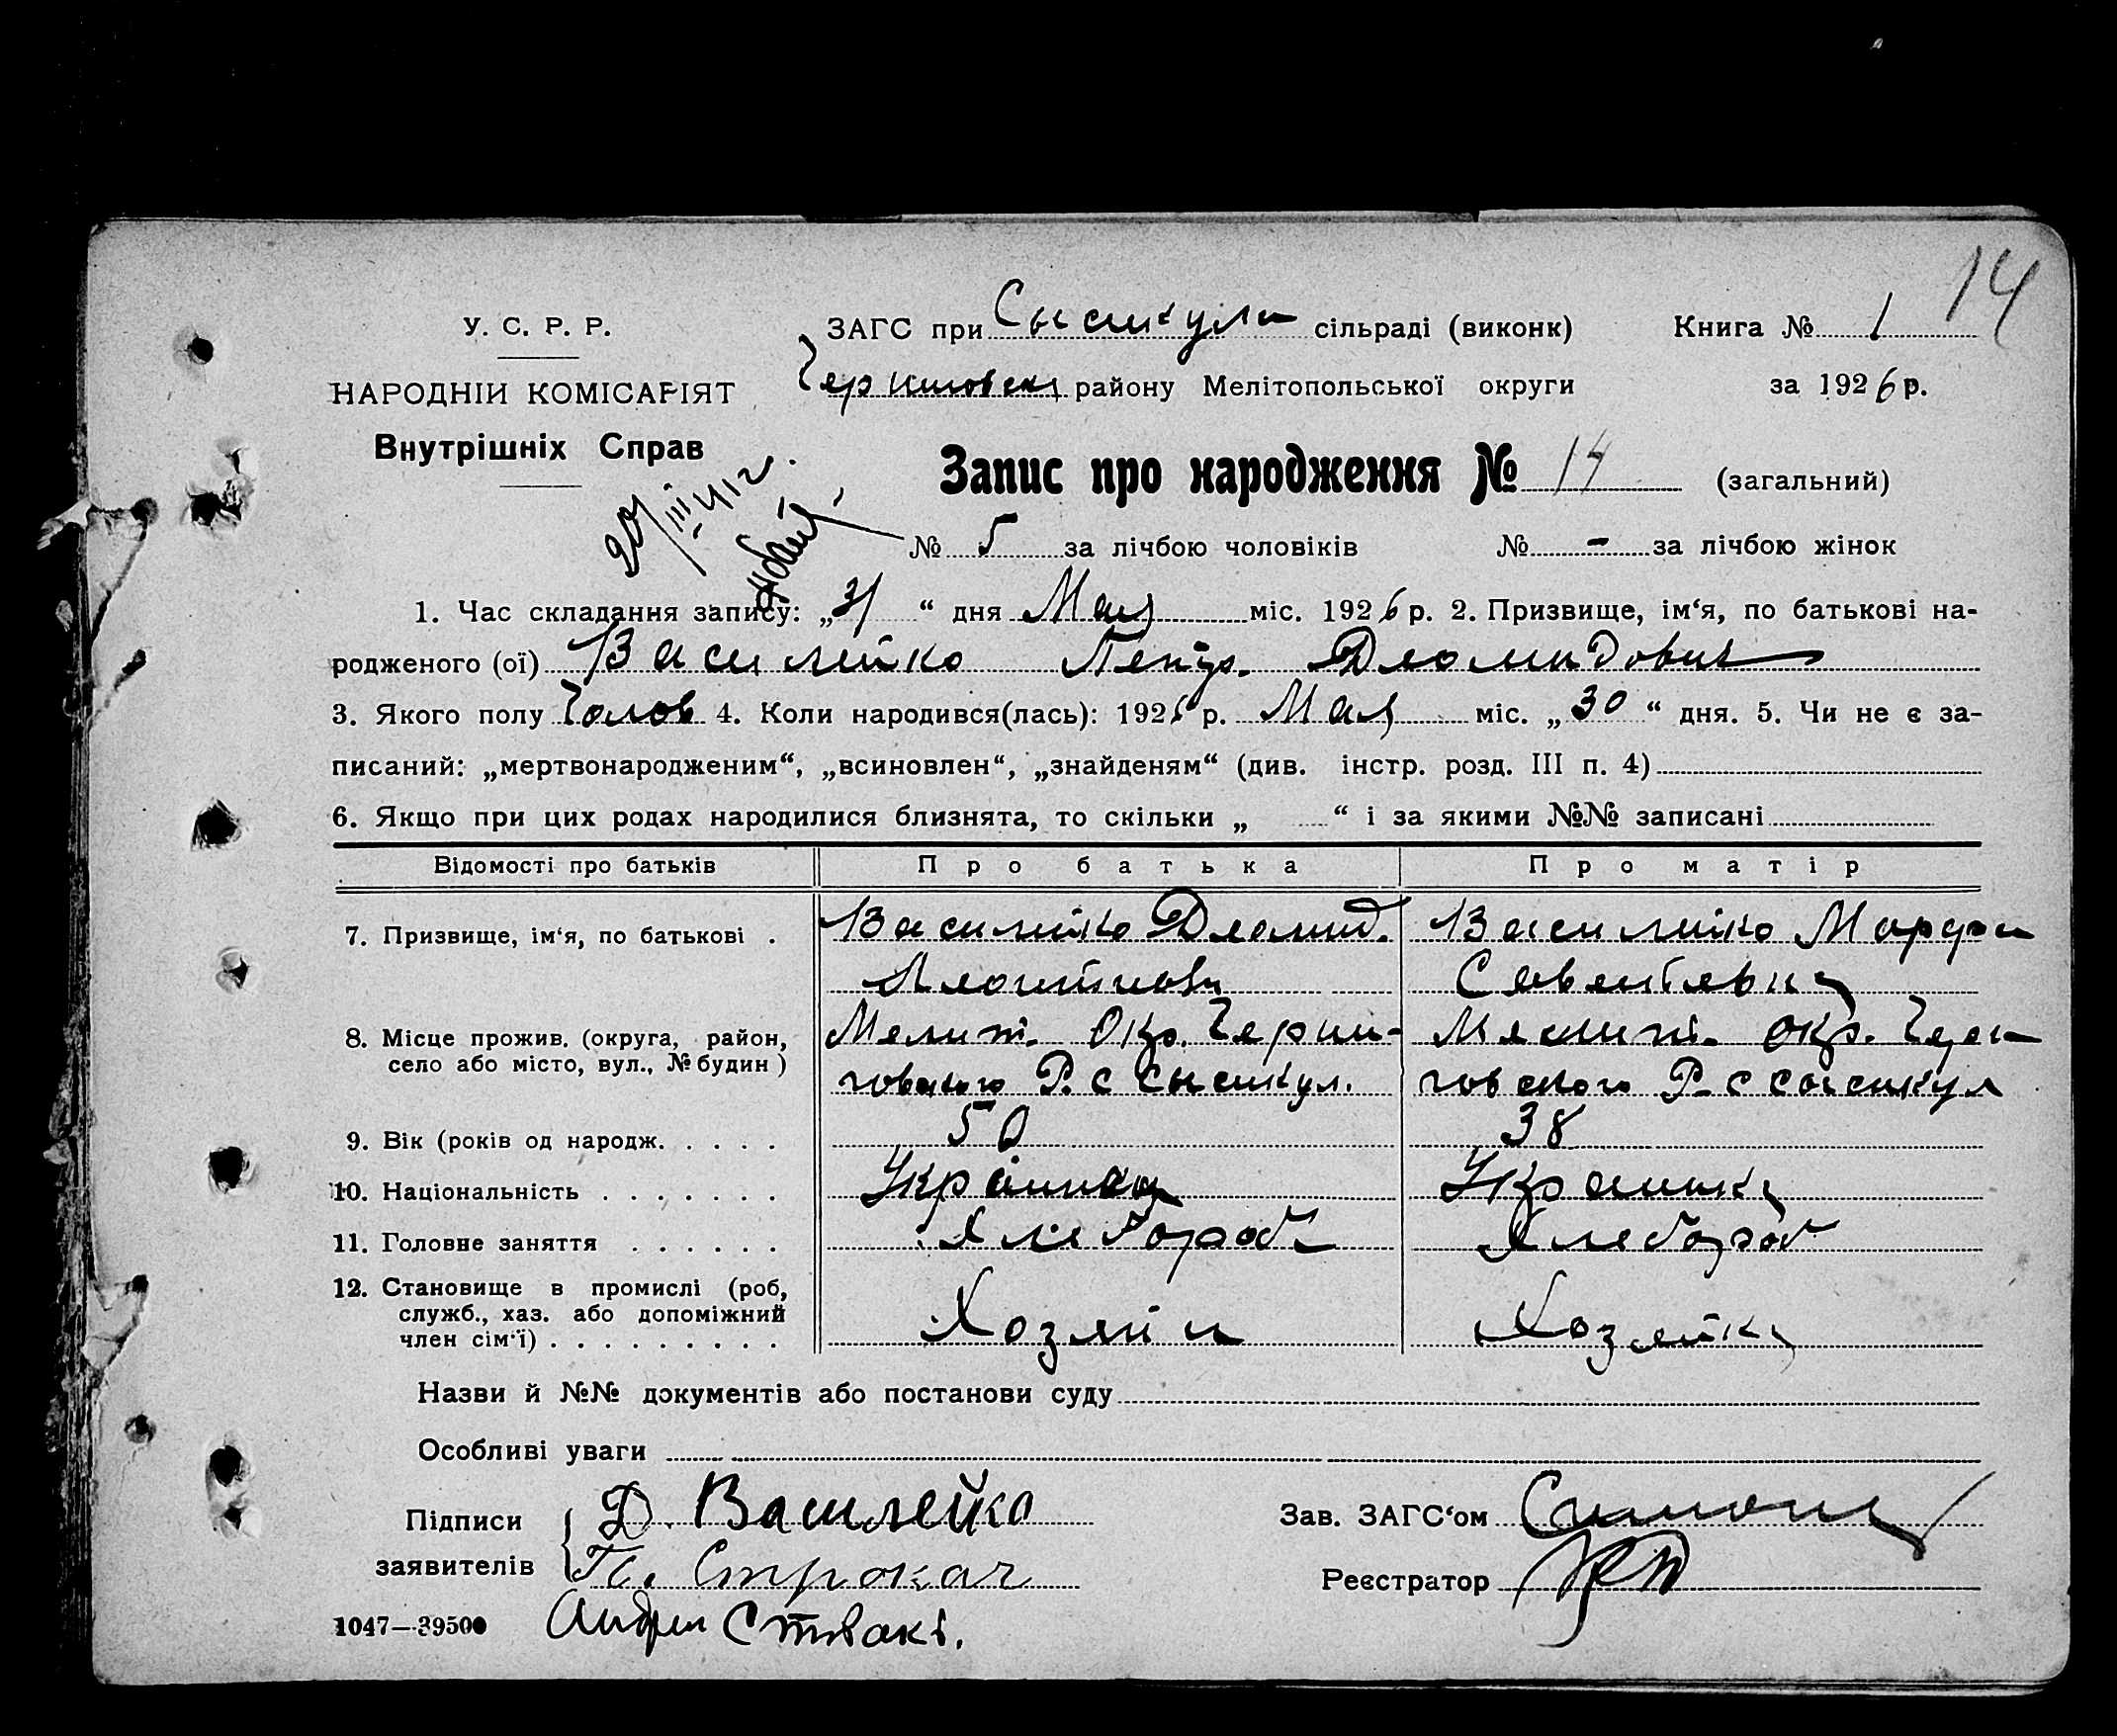 14
У. С. Р. Р.
НАРОДНІЙ КОМІСАРІЯТ
Внутрішніх Справ
ЗАГС при Сысикули сільраді (виконк)
Книга № 1
району Мелітопольської округи
за 1926 р.
Запис про народження № 14 (загальний)
№ 5 за лічбою чоловіків № - за лічбою жінок
1. Час складання запису: „31“ дня Мая міс. 1926 р. 2. Призвище, ім‘я, по батькові на-
родженого (ої) Василейко Петр. Диомидович
3. Якого полу Голов 4. Коли народився(лась): 1926 р. Мая міс. „30“ дня. 5. Чи не є за-
писаний: „мертвонародженим“, „всиновлен“, „знайденям“ (див. інстр. розд. III п. 4)
6. Якщо при цих родах народилися близнята, то скільки „ “ і за якими №№ записані
Відомості про батьків Про батька Про матір
7. Призвище, ім‘я, по батькові . Василейко Диомид. Василейко Марфа
Савельевна
8. Місце прожив. (округа, район, Мелит. Окр. Черни- Мелит. окр. Черни
село або місто, вул., № будин) говского Р. с Сысикул. говского Р. с Сысикул
9. Вік (років од народж. . . . . 50 38
10. Національність . . . . . . . Украинец Украинка
11. Головне заняття . . . . . . Хлебороб Хлебороб
12. Становище в промислі (роб,
служб., хаз. або допоміжний
член сім‘ї) . . . . . . . . . Хозяин Хозяйка
Назви й №№ документів або постанови суду
Особливі уваги
Підписи заявителів
Д. Василейко
Строкач
Андрей
Зав. ЗАГС‘ом
Реєстратор
1047—39500